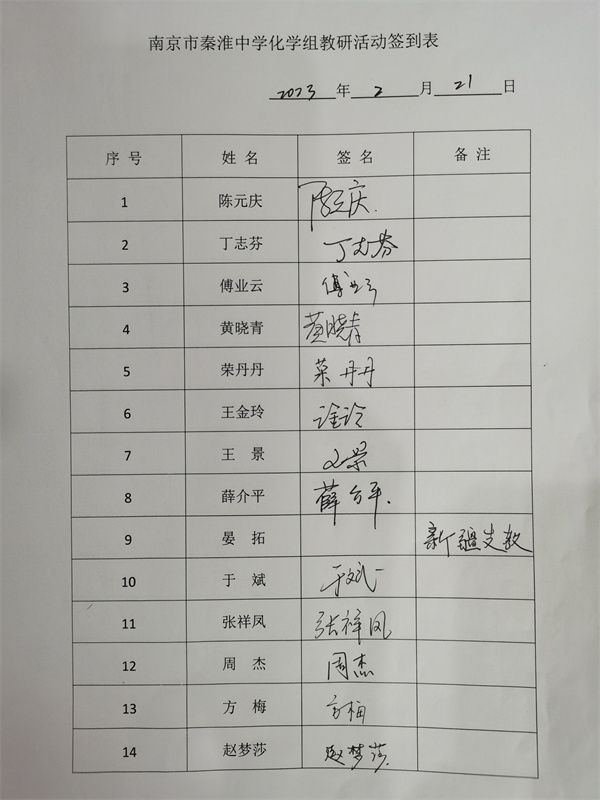 南京市秦淮中学化学组教研活动签到表
2023 年 2 月 21 日
序 号 姓 名 签 名 备 注
1 陈元庆 陈元庆.
2 丁志芬 丁志芬
3 傅业云 傅业云
4 黄晓青 黄晓青
5 荣丹丹 荣丹丹
6 王金玲 王金玲
7 王 景 王景
8 薛介平 薛介平.
9 晏 拓 新疆支教
10 于 斌 于斌
11 张祥凤 张祥凤
12 周 杰 周杰
13 方 梅 方梅
14 赵梦莎 赵梦莎